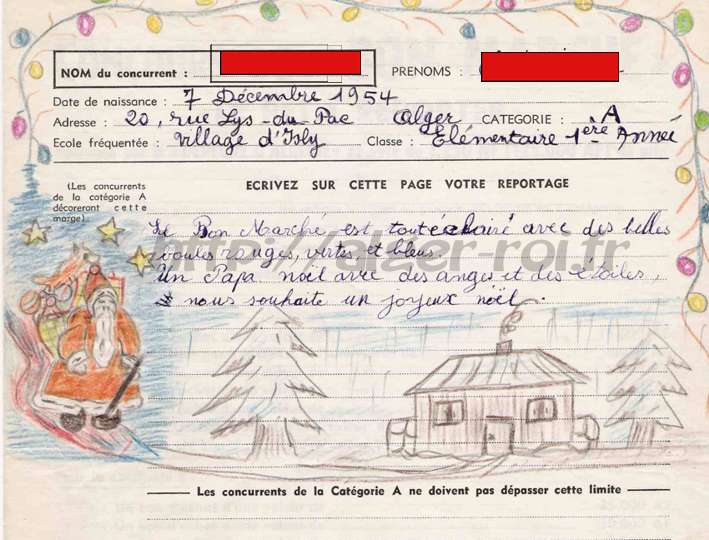 NOM du concurrent :
PRENOMS :
Date de naissance : 7 Décembre 1954
Adresse : 20, rue Lys-du Pac Alger CATEGORIE : A
Ecole fréquentée : Village d'Isly Classe : Elémentaire 1ère Année
(Les concurrents
de la catégorie A
décoreront cette
marge)
ECRIVEZ SUR CETTE PAGE VOTRE REPORTAGE
Le Bon Marché est tout éclairé avec des belles
boules rouges, vertes, et bleus.
Un Papa noël avec des anges et des étoiles,
nous souhaite un joyeux noël.
http://alger-roi.fr
Les concurrents de la Catégorie A ne doivent pas dépasser cette limite